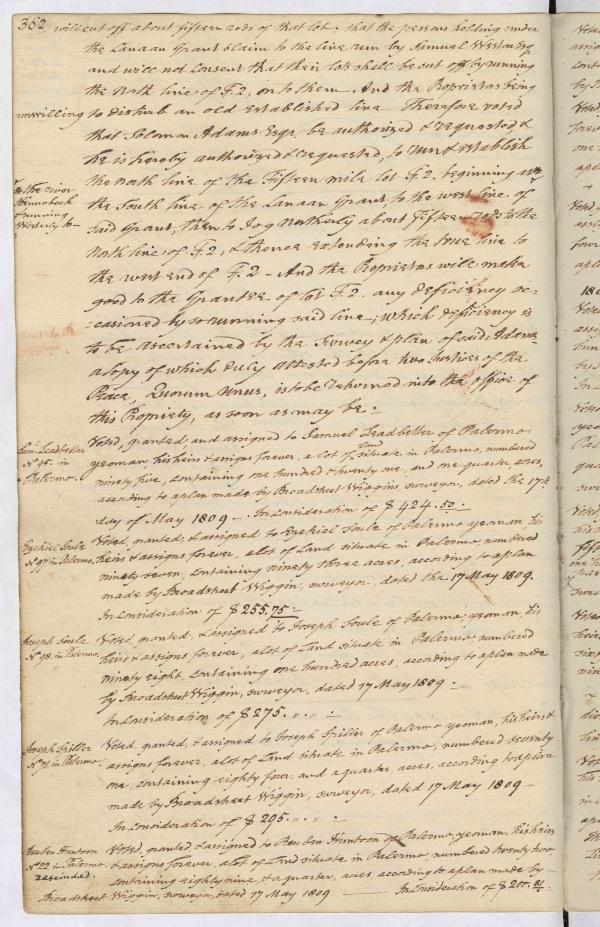 382 will cut off about fifteen rods of that lot; that the persons holding under
the Canaan Grant claim to the line run by Samuel Weston Esqr
and will not consent that their lots shall be cut off by running
the North line of F.2, on to them. And the Proprietors being
unwilling to disturb an old established line. Therefore voted
that Solomon Adams Esqr, be authorized & requested, &
he is hereby authorized & requested, to run & establish
the North line of the Fifteen mile lot F.2, beginning at
the river
Kennebeck
& running
Westerly to
the South line of the Canaan Grant, to the west line of
said Grant; then to Jog Northerly about fifteen rods to the
North line of F.2, & thence extending the true line to
the west end of F.2 - And the Proprietors will make
good to the Grantee of lot F.2. any deficiency oc=
=casioned by so running said line; which deficiency is
to be ascertained by the Survey & plan of said Adams
a copy of which duly attested before two Justices of the
Peace, Quorum Unus, is to be returned into the office of
this Propriety, as soon as may be.
Saml. Leadbetter
No. 95. in
Palermo.
Voted, granted, and assigned to Samuel Leadbetter of Palermo
yeoman his heirs & assigns forever, a lot of Land situate in Palermo, numbered
ninety five, containing one hundred & twenty one, and one quarter, acres,
according to a plan made by Broadstreet Wiggins, surveyor, dated the 17th
day of May 1809 - In Consideration of $424.50
Ezekiel Soule
No. 97. in Palermo.
Voted, granted, & assigned to Ezekiel Soule of Palermo yeoman, his
heirs & assigns forever, a lot of Land situate in Palermo, numbered
ninety seven, containing ninety three acres, according to a plan
made by Broadstreet Wiggin, surveyor, dated the 17 May 1809.
In Consideration of $255.75
Joseph Soule
No. 98. in Palermo.
Voted, granted, & assigned to Joseph Soule of Palermo, yeoman, his
heirs & assigns forever, a lot of Land situate in Palermo, numbered
ninety eight, containing one hundred acres, according to a plan made
by Broadstreet Wiggin, surveyor, dated 17 May 1809
In Consideration of $275.
Joseph Spiller
No. 71. in Palermo.
Voted, granted, & assigned to Joseph Spiller of Palermo yeoman, his heirs &
assigns forever, a lot of Land situate in Palermo, numbered seventy
one, containing eighty four, and a quarter, acres, according to a plan
made by Broadstreet Wiggin, surveyor, dated 17 May 1809
In Consideration of $295.
Reuben Huntoon
No. 22. in Palermo
rescinded.
Voted, granted & assigned to Reuben Huntoon of Palermo, yeoman, his heirs
& assigns forever, a lot of Land situate in Palermo, numbered twenty two
containing eighty nine, & a quarter, acres according to a plan made by
Broadstreet Wiggin, surveyor, dated 17 May 1809 - In Consideration of $200.81